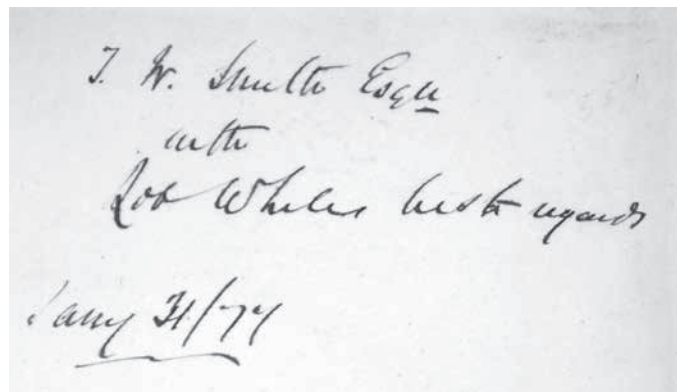 T. W. Smith Esqre
with
Rob White's best regards
Jany 31/74